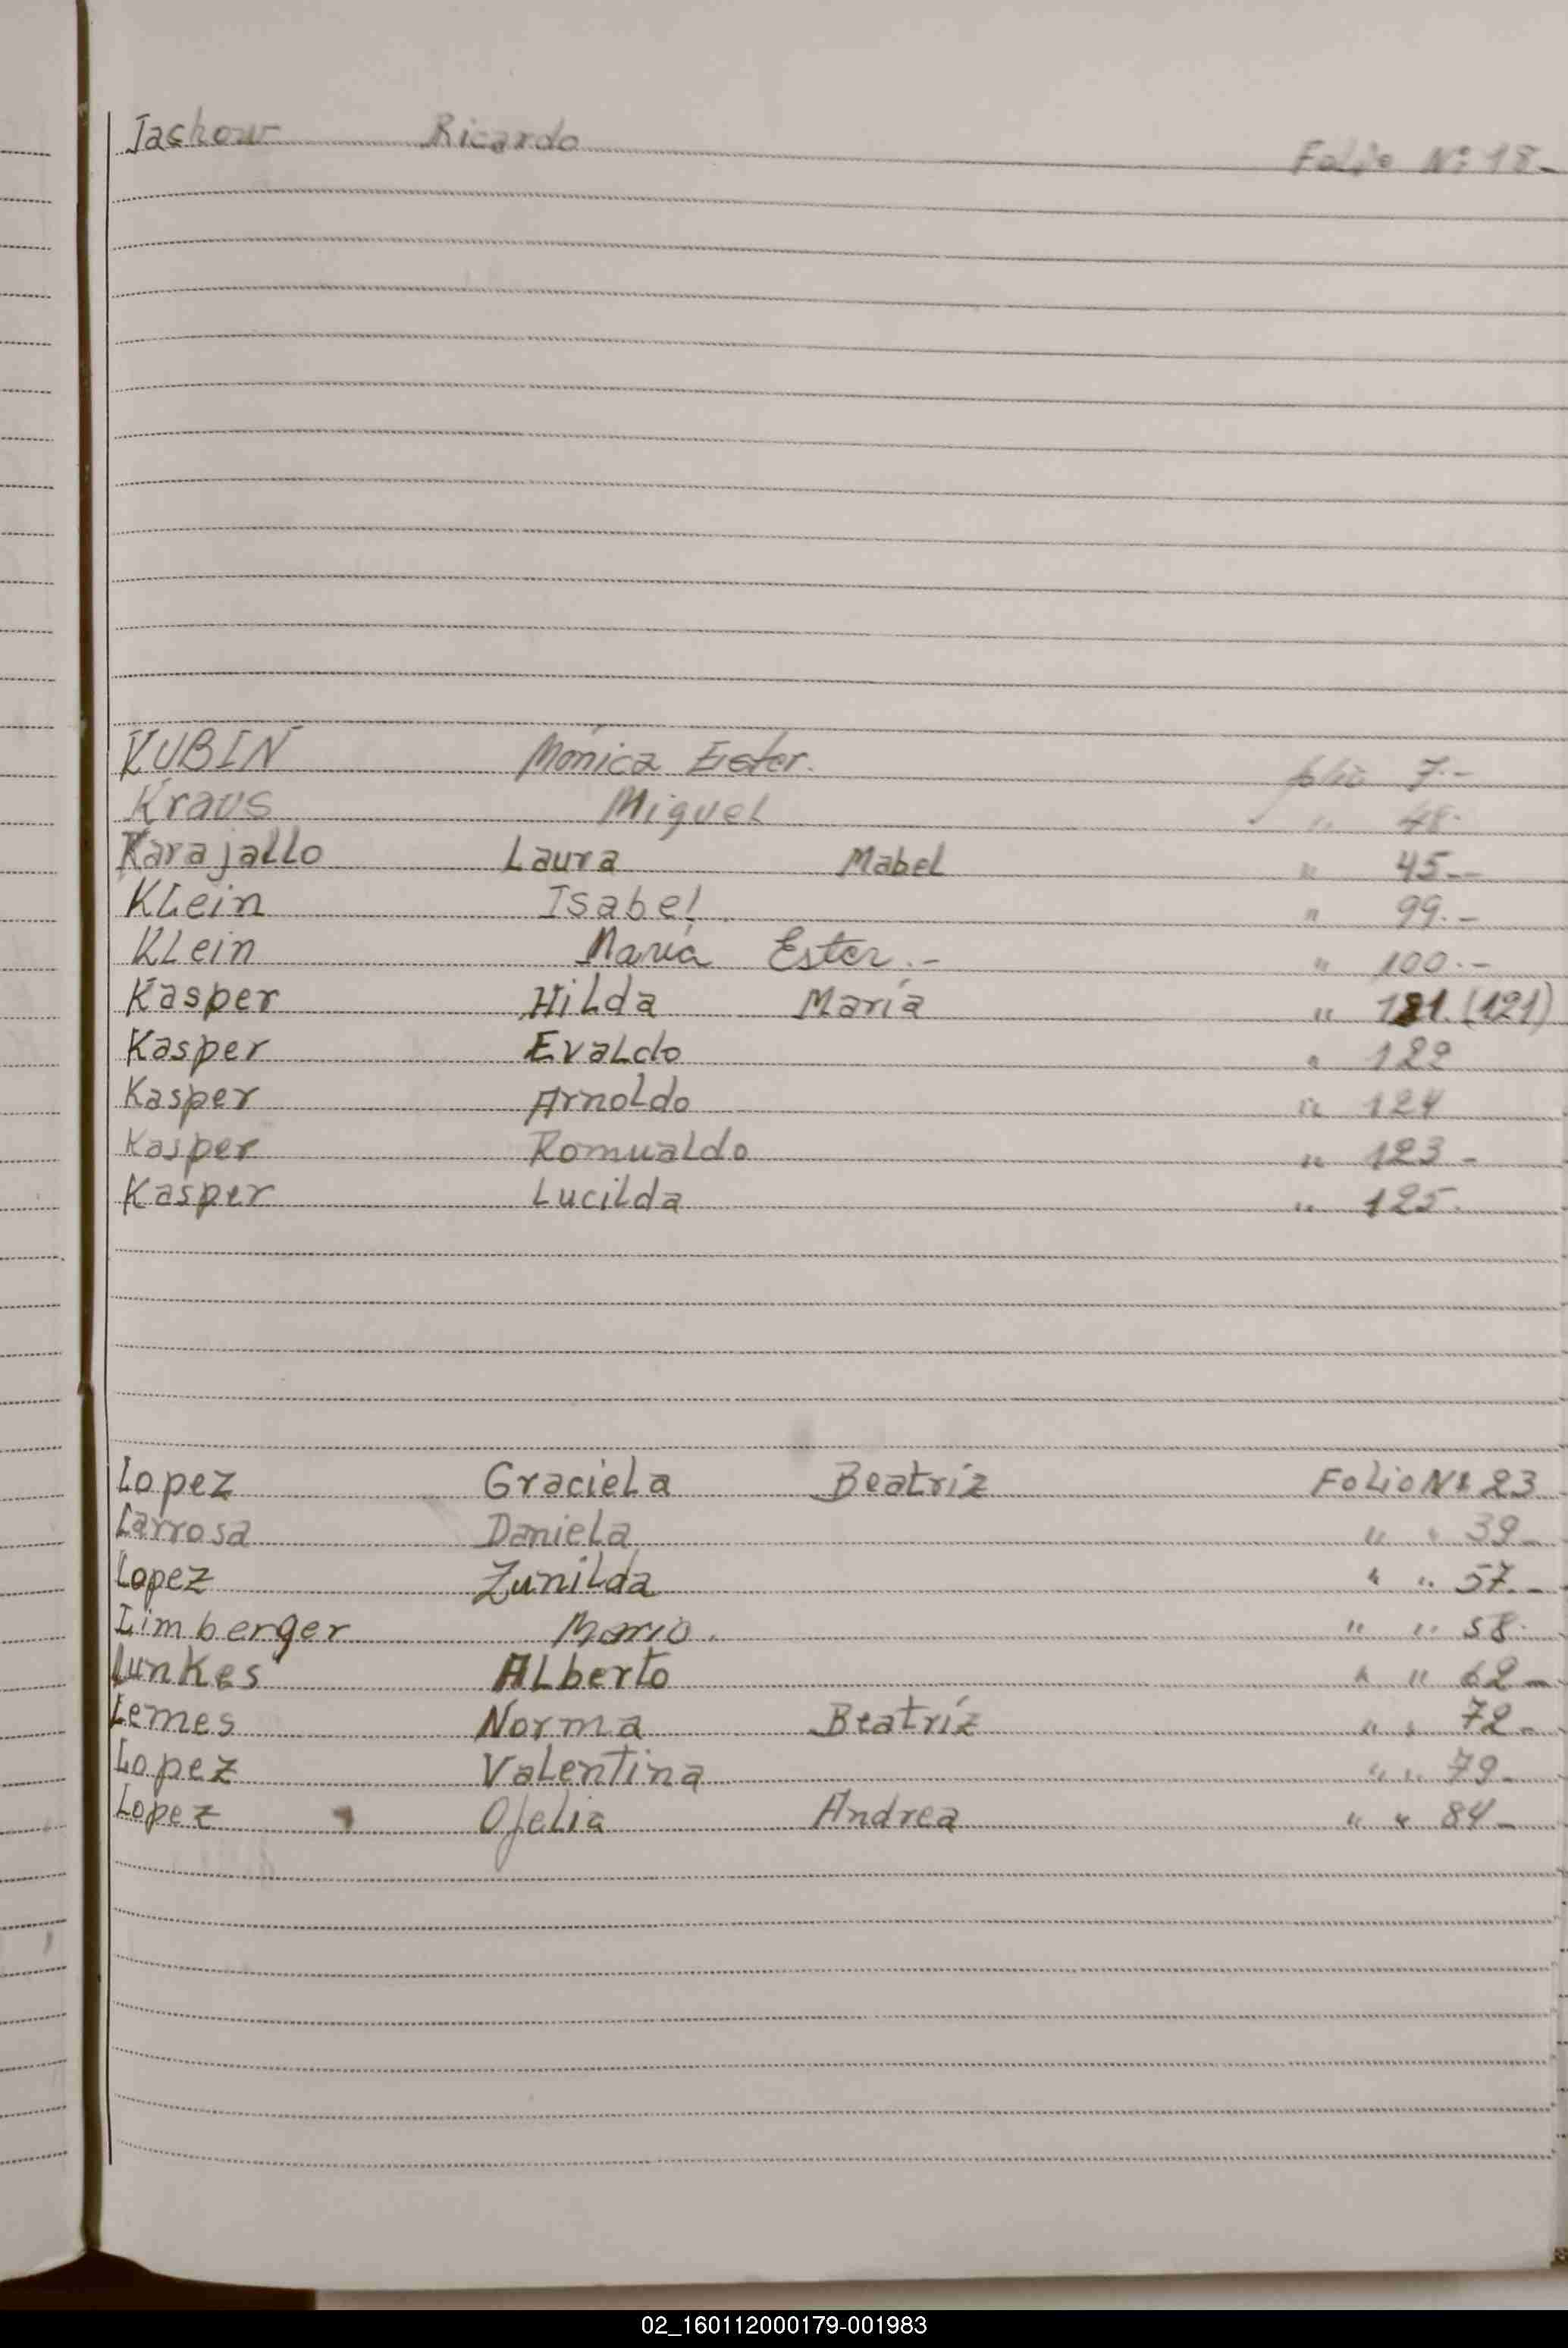 Jachow Ricardo Folio Nº 18-
KUBIN Mónica Ester. folio 7.-
Kraus Miguel " 48.
Karajallo Laura Mabel " 45--
KLein Isabel. " 99.-
KLein María Ester.- " 100.-
Kasper HiLda María " 121. (121)
Kasper EvaLdo " 122
Kasper ArnoLdo " 124
Kasper RomuaLdo " 123-
Kasper Lucilda " 125.
Lopez GracieLa Beatríz FoLio Nº 23
Larrosa DanieLa " " 39-
Lopez ZuniLda " " 57.-
Limberger Mario. " " 58.
Lunkes ALberto " " 62-
Lemes Norma Beatríz " " 72-
Lopez VaLentina " " 79-
Lopez OfeLia Andrea " " 84-
02_160112000179-001983